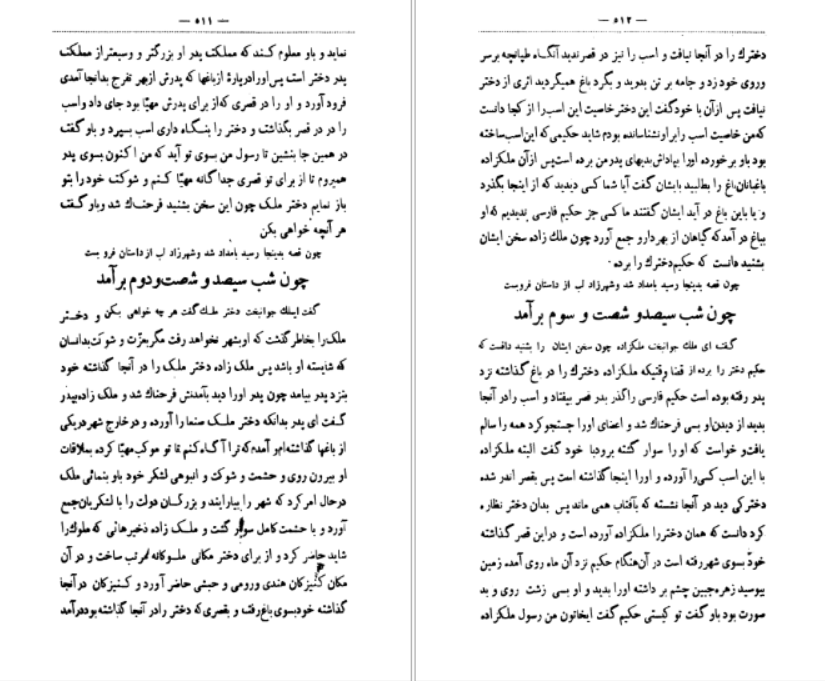 — ٥١١ —
نماید و باو معلوم کند که مملکت پدر او بزرگتر و وسیعتر از مملکت
پدر دختر است پس اورا درپارهٔ ازباغها که پدرش ازبهر تفرج بدانجا آمدی
فرود آورد و او را در قصری که از برای پدرش مهیّا بود جای داد واسب
را در در قصر بگذاشت و دختر را بنگاه داری اسب بسپرد و باو گفت
در همین جا بنشین تا رسول من بسوی تو آید که من اکنون بسوی پدر
همیروم تا از برای تو قصری جداگانه مهیّا کنم و شوکت خود را بتو
باز نمایم دختر ملک چون این سخن بشنید فرحناک شد وباو گفت
هر آنچه خواهی بکن
چون قصه بدینجا رسید بامداد شد وشهرزاد لب ازداستان فروبست
چون شب سیصد و شصت‌ودوم برآمد
گفت ایملک جوانبخت دختر ملک گفت هر چه خواهی بکن و دختر
ملک را بخاطر گذشت که اوبشهر نخواهد رفت مگر بعزّت و شوکت بدانسان
که شایسته او باشد پس ملک زاده دختر ملک را در آنجا گذاشته خود
بنزد پدر بیامد چون پدر اورا دید بآمدنش فرحناک شد و ملک زاده بپدر
گفت ای پدر بدانکه دختر ملک صنعا را آورده و درخارج شهر دریکی
از باغها گذاشته‌ام و آمدم که ترا آگاه کنم تا تو موکب مهیّا کرده بملاقات
او بیرون روی و حشمت و شوکت و انبوهی لشکر خود باو بنمائی ملک
درحال امر کرد که شهر را بیارایند و بزرگان دولت را با لشکریان جمع
آورد و با حشمت کامل سوار گشت و ملک زاده ذخیرهائی که ملوک را
شاید حاضر کرد و از برای دختر مکانی ملوکانه مرتب ساخت و در آن
مکان کنیزکان هندی ورومی و حبشی حاضر آورد و کنیزکان در آنجا
گذاشته خود بسوی باغ رفت و بقصری که دختر رادر آنجا گذاشته بود درآمد
— ٥١٢ —
دخترک را در آنجا نیافت و اسب را نیز در قصر ندید آنگاه طپانچه برسر
وروی خود زد و جامه بر تن بدرید و بگرد باغ همیگردید اثری از دختر
نیافت پس ازآن با خودگفت این دختر خاصیت این اسب را از کجا دانست
که من خاصیت اسب را بر او نشناسانده بودم شاید حکیمی که این اسب ساخته
بود باو برخورده اورا بپاداش بدیهای پدرمن برده است پس ازآن ملکزاده
باغبانان باغ را بطلبید بایشان گفت آیا شما کسی دیدید که از اینجا بگذرد
و یا باین باغ در آید ایشان گفتند ما کسی جز حکیم فارسی ندیدیم که او
بباغ در آمد که گیاهان از بهر دارو جمع آورد چون ملک زاده سخن ایشان
بشنید دانست که حکیم دخترک را برده ·
چون قصه بدینجا رسید بامداد شد وشهرزاد لب از داستان فروبست
چون شب سیصدو شصت و سوم برآمد
گفت ای ملک جوانبخت ملکزاده چون سخن ایشان را بشنید دانست که
حکیم دختر را برده از قضا وقتیکه ملکزاده دخترک را در باغ گذاشته نزد
پدر رفته بوده است حکیم فارسی را گذر بدر قصر بیفتاد و اسب را در آنجا
بدید از دیدن او بسی فرحناک شد و اعضای اورا جستجو کرد همه را سالم
یافت و خواست که او را سوار گشته برود با خود گفت البته ملکزاده
با این اسب کسی را آورده و اورا اینجا گذاشته است پس بقصر اندر شده
دخترکی دید در آنجا نشسته که بآفتاب همی ماند پس بدان دختر نظاره
کرد دانست که همان دختر را ملکزاده آورده است و دراین قصر گذاشته
خود بسوی شهر رفته است در آن هنگام حکیم نزد آن ماه روی آمده زمین
ببوسید زهره جبین چشم بر داشته اورا بدید و او بسی زشت روی و بد
صورت بود باو گفت تو کیستی حکیم گفت ایخاتون من رسول ملکزاده